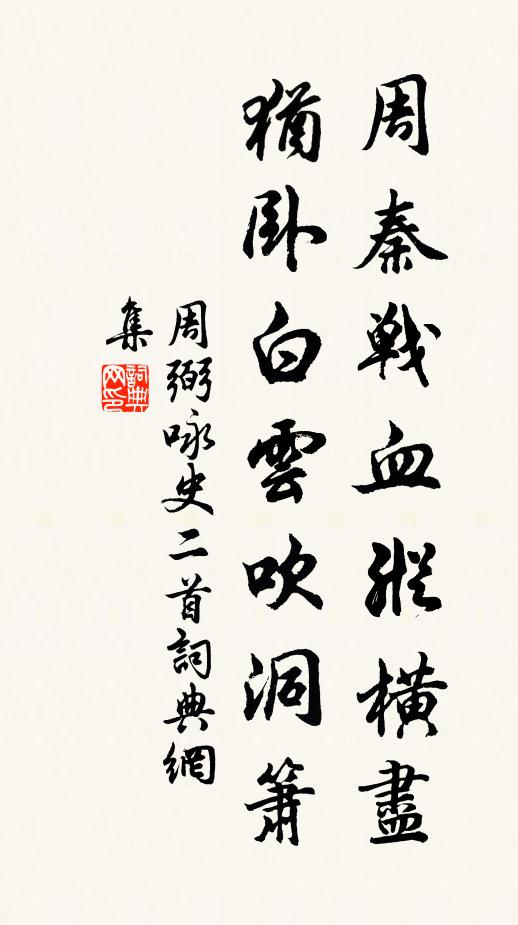 周秦戰血縱橫盡
猶卧白雲吹洞簫
周弼咏史二首詞典網
集
詞典网印